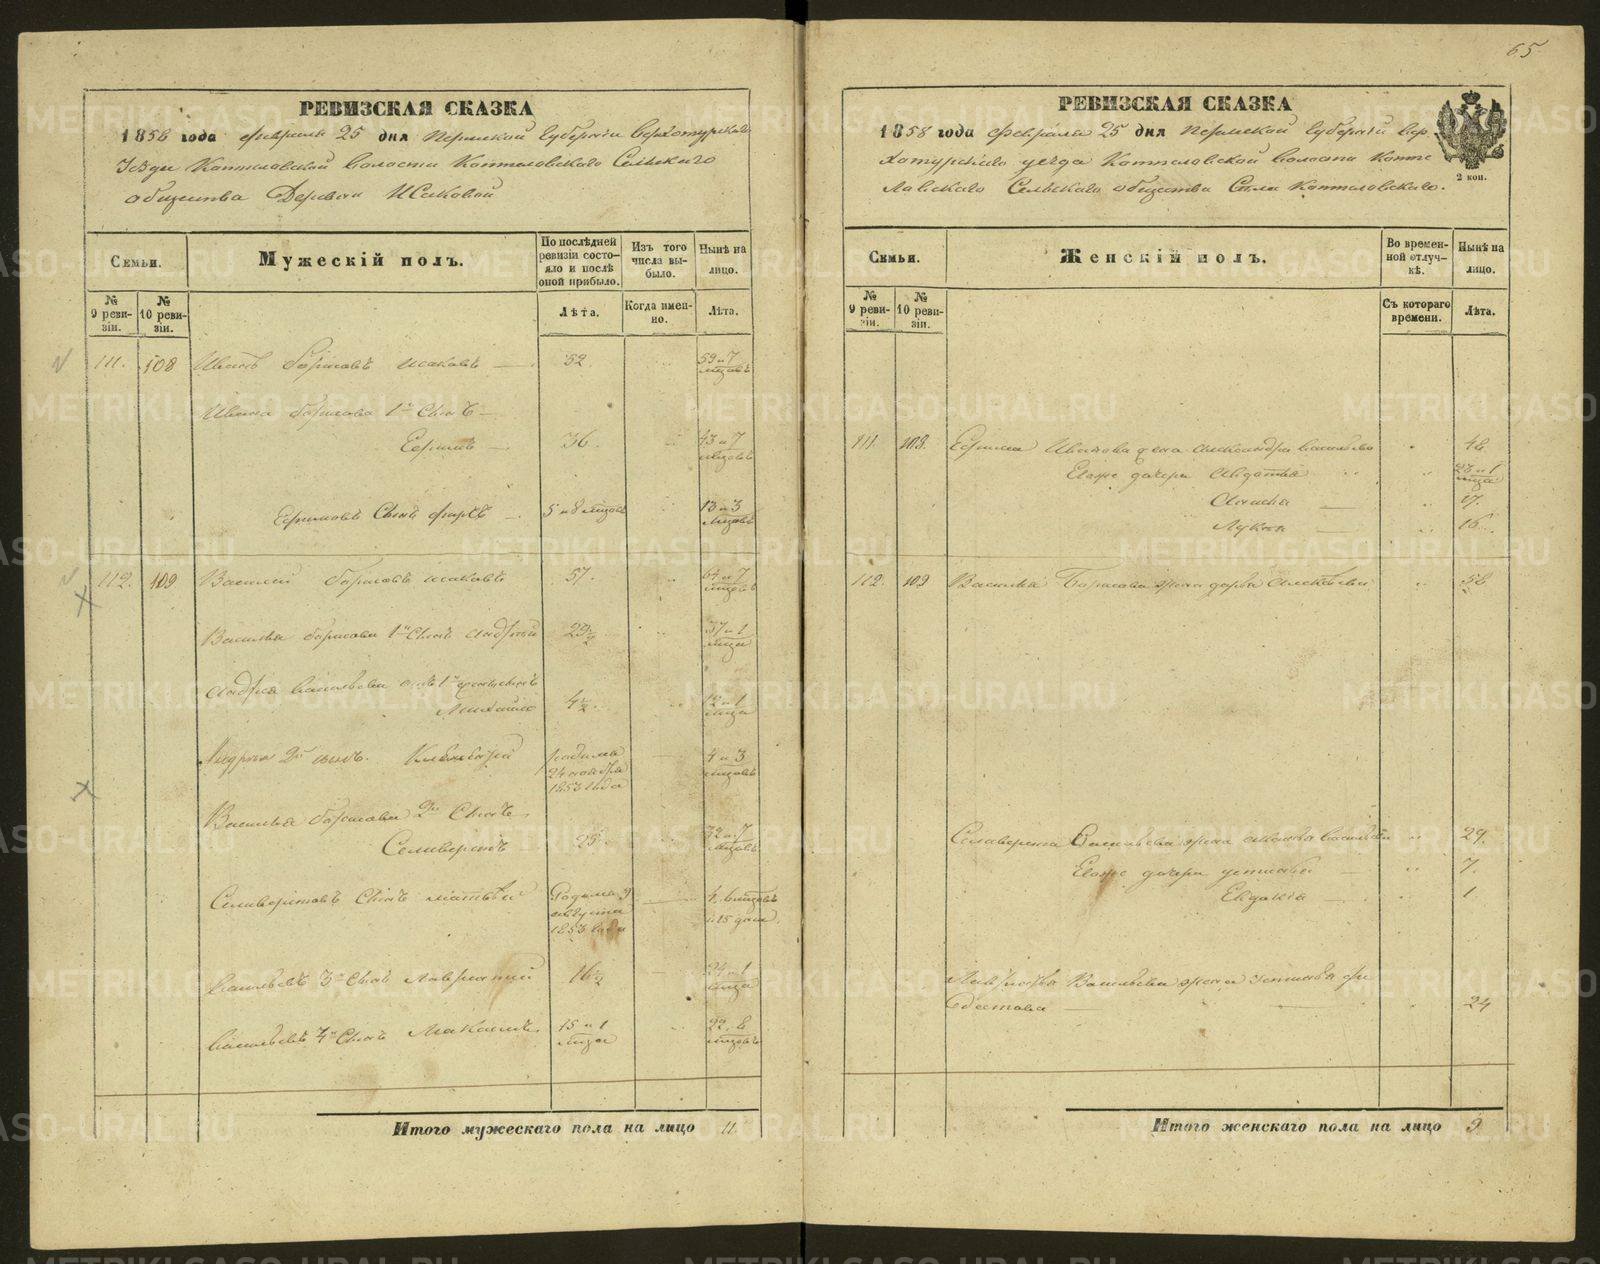 65
РЕВИЗСКАЯ СКАЗКА
1858 года февраля 25 дня Пермской Губернии Верхотурскаго
Уезда Коптеловской Волости Коптеловскаго Сельскаго
общества Деревни Исаковой
Семьи.
Мужескій полъ.
По послѣдней ревизіи состояло и послѣ оной прибыло.
Изъ того числа выбыло.
Нынѣ на лицо.
№ 9 ревизіи.
№ 10 ревизіи.
Лѣта.
Когда именно.
Лѣта.
111. 108 Иванъ Борисовъ Исаковъ 52 59 и 7 мцовъ
Ивана Борисова 1й Сынъ
Ефимъ 36. 43 и 7 мцовъ
Ефимовъ Сынъ 5 и 8 мцовъ 13 и 3 мцовъ
112. 109 Василій Борисовъ Исаковъ 57. 64 и 7 мцовъ
Василья Борисова 1й Сынъ Андрей 29½ 37 и 1 мца
Андрея Васильева 1й сынъ
Михайло 4½ 12 и 1 мца
Андрея 2й сынъ. родился 24 ноября 1853 года 4 и 3 мцовъ
Василья Борисова 2й Сынъ
Селиверстъ 25 32 и 7 мцовъ
Селиверстовъ Сынъ Матвѣй Родился 9 августа 1853 года 4. 6 мцовъ и 15 дней
Васильевъ 3й Сынъ Лаврентій 16½ 24 и 1 мца
Васильевъ 4й Сынъ Максимъ 15 и 1 мца 22. 8 мцовъ
Итого мужескаго пола на лицо 11.
РЕВИЗСКАЯ СКАЗКА
2 коп.
1858 года Февраля 25 дня Пермской Губерніи Вер
хотурскаго уезда Коптеловской Волости Копте
ловскаго Сельскаго общества Села Коптеловскаго.
Семьи.
Женскій полъ.
Во временной отлучкѣ.
Нынѣ на лицо.
№ 9 ревизіи.
№ 10 ревизіи.
Съ котораго времени.
Лѣта.
111. 108. Ефима Иванова жена Александра Васильева 48.
Ея же дочери Авдотья 23 и 1 мца
Анисья 17.
Лукея 16.
112. 109 Василья Борисова жена Дарья Алексѣева 58.
Селиверста Васильева жена Васильева 29.
Ея же дочери Устинья 7.
Евдокія 1.
Лаврентья Васильева жена Устинья Фе
24
Итого женскаго пола на лицо 9
METRIKI.GASO-URAL.RU